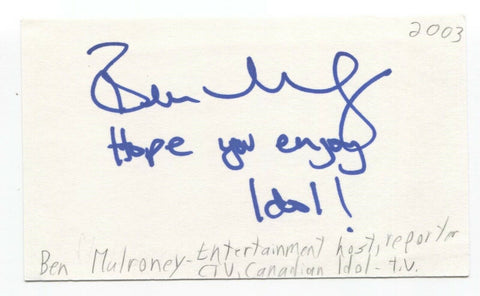 2003
Ben Mulroney
Hope you enjoy
Idol!
Ben Mulroney-Entertainment host, reporter
CTV, Canadian Idol - t.v.